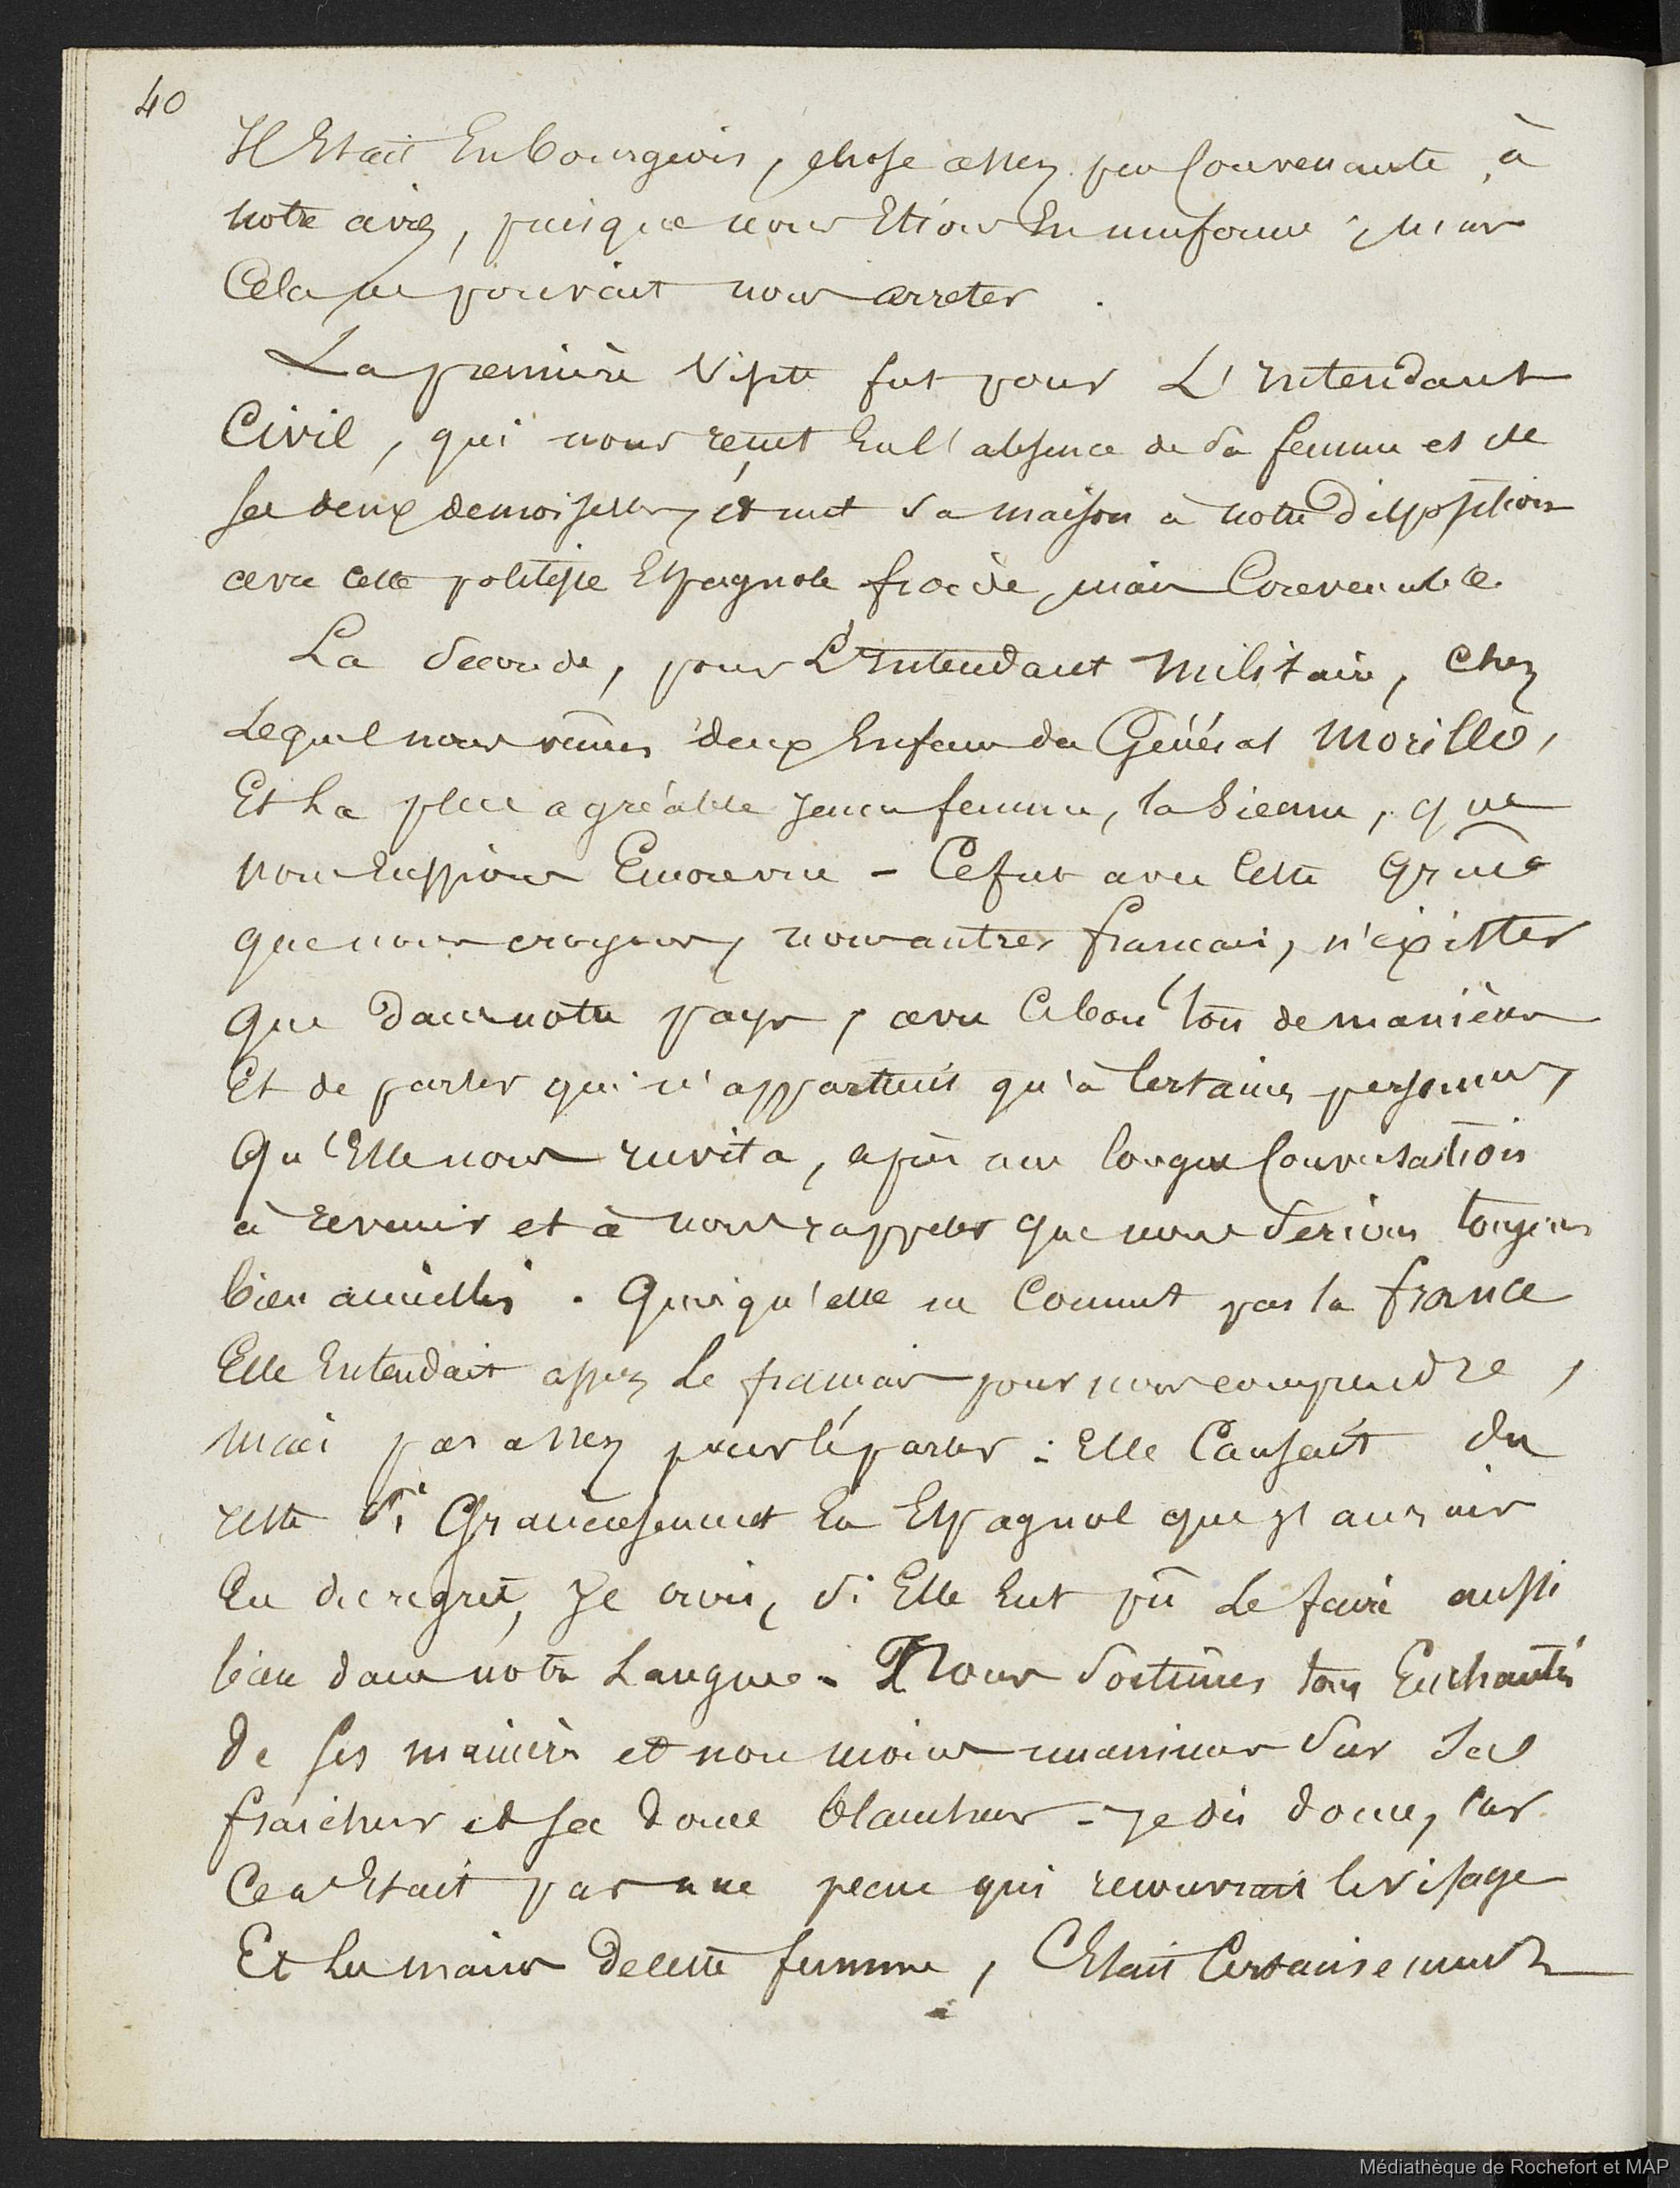 40
Il Etait En bourgeois, chose assez peu Convenante, à
notre avis, puisque nous Etions En uniforme ; mais
Cela ne pouvait nous arreter .
La premiere Visite fut pour L'Intendant
Civil, qui nous reçut En l'absence de Sa femme et de
ses deux demoiselles, et mit Sa maison à notre disposition
avec cette politesse Espagnole froide, mais Convenable.
La Seconde, pour L'Intendant Militaire, Chez
Lequel nous vimes deux Enfans du Général Morillo,
Et La plus agréable jeune femme, la Sienne, que
nous Eussions Encore vue - Ce fut avec Cette Grace
que nous croyons, nous autres francais, n'exister
que dans notre pays, avec Ce bon ton de manières
Et de parler qui n'appartient qu'à Certaines personnes,
Qu'Elle nous invita, après une longue Conversation
à revenir et à nous rappeler que nous Serions toujours
bien accueillis . Quoiqu'elle ne Connut pas la france
Elle Entendait assez le francais pour nous comprendre,
mais pas assez pour le parler : Elle Causait du
reste Si Gracieusement En Espagnol que j'aurais
Eu du regret, Je crois, Si Elle Eut pû Le faire aussi
bien dans notre Langue - Nous Sortimes tous Enchantés
de ses manières et non moins unanimes Sur Sa
fraicheur et sa douce blancheur - Je dis douce, Car
Ce n'Etait pas une peau qui recouvrait le visage
Et les mains de cette femme, C'Etait Certainement